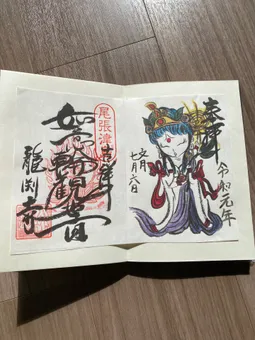 奉拝
令和元年
文月
七月六日
尾張津
如意輪観世音
龍渕寺